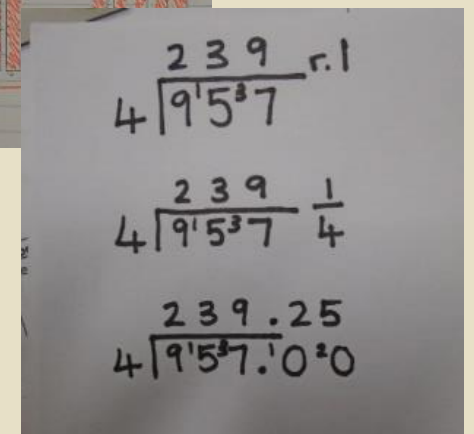 2 3 9 r.1
4 9 ¹5 ³7
2 3 9 1/4
4 9 ¹5 ³7
2 3 9 . 2 5
4 9 ¹5 ³7 . ¹0 ²0